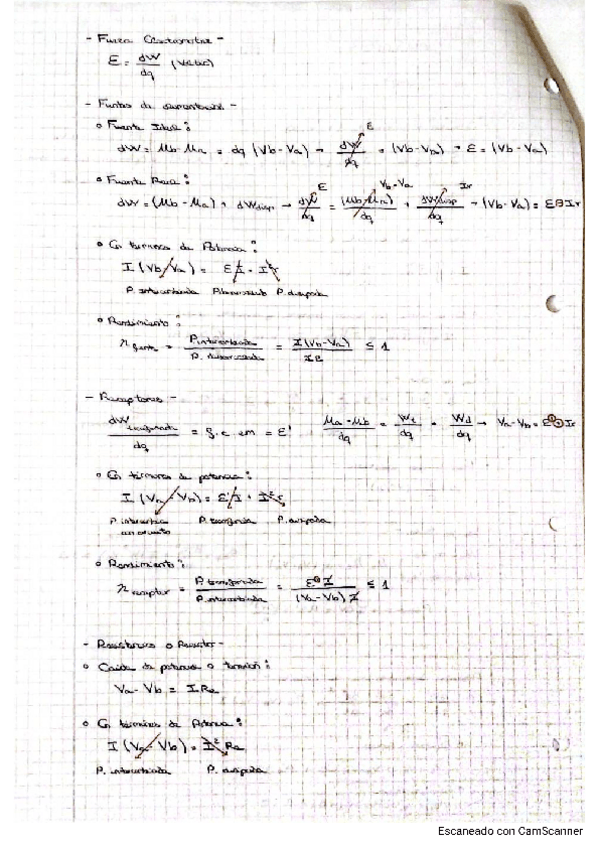 - Fuerza Electromotriz -
E = dW/dq (Voltio)
- Fuentes de alimentación -
o Fuente Ideal:
dW = Mb - Ma = dq (Vb - Va) → dW/dq = (Vb - Va) → E = (Vb - Va)
o Fuente Real:
dW = (Mb - Ma) + dWdisp → dW/dq = (Mb - Ma)/dq + dWdisp/dq → (Vb - Va) = E ⊖ Ir
o En términos de Potencia:
I (Vb - Va) = E I - I² r
P. intercambiada P. suministrada P. disipada
o Rendimiento:
n fuente = P. intercambiada / P. suministrada = I (Vb - Va) / I E ≤ 1
- Receptores -
dW transformada / dq = f.c.em = E' Ma - Mb / dq = Wt / dq + Wd / dq → Va - Vb = E' ⊕ Ir
o En términos de potencia:
I (Va - Vb) = E' I + I² r
P. intercambiada P. transformada P. disipada
o Rendimiento:
n receptor = P. transformada / P. intercambiada = E' I / (Va - Vb) I ≤ 1
- Resistencia o Resistor -
o Caída de potencia o tensión:
Va - Vb = I Re
o En términos de Potencia:
I (Va - Vb) = I² Re
P. intercambiada P. disipada
Escaneado con CamScanner